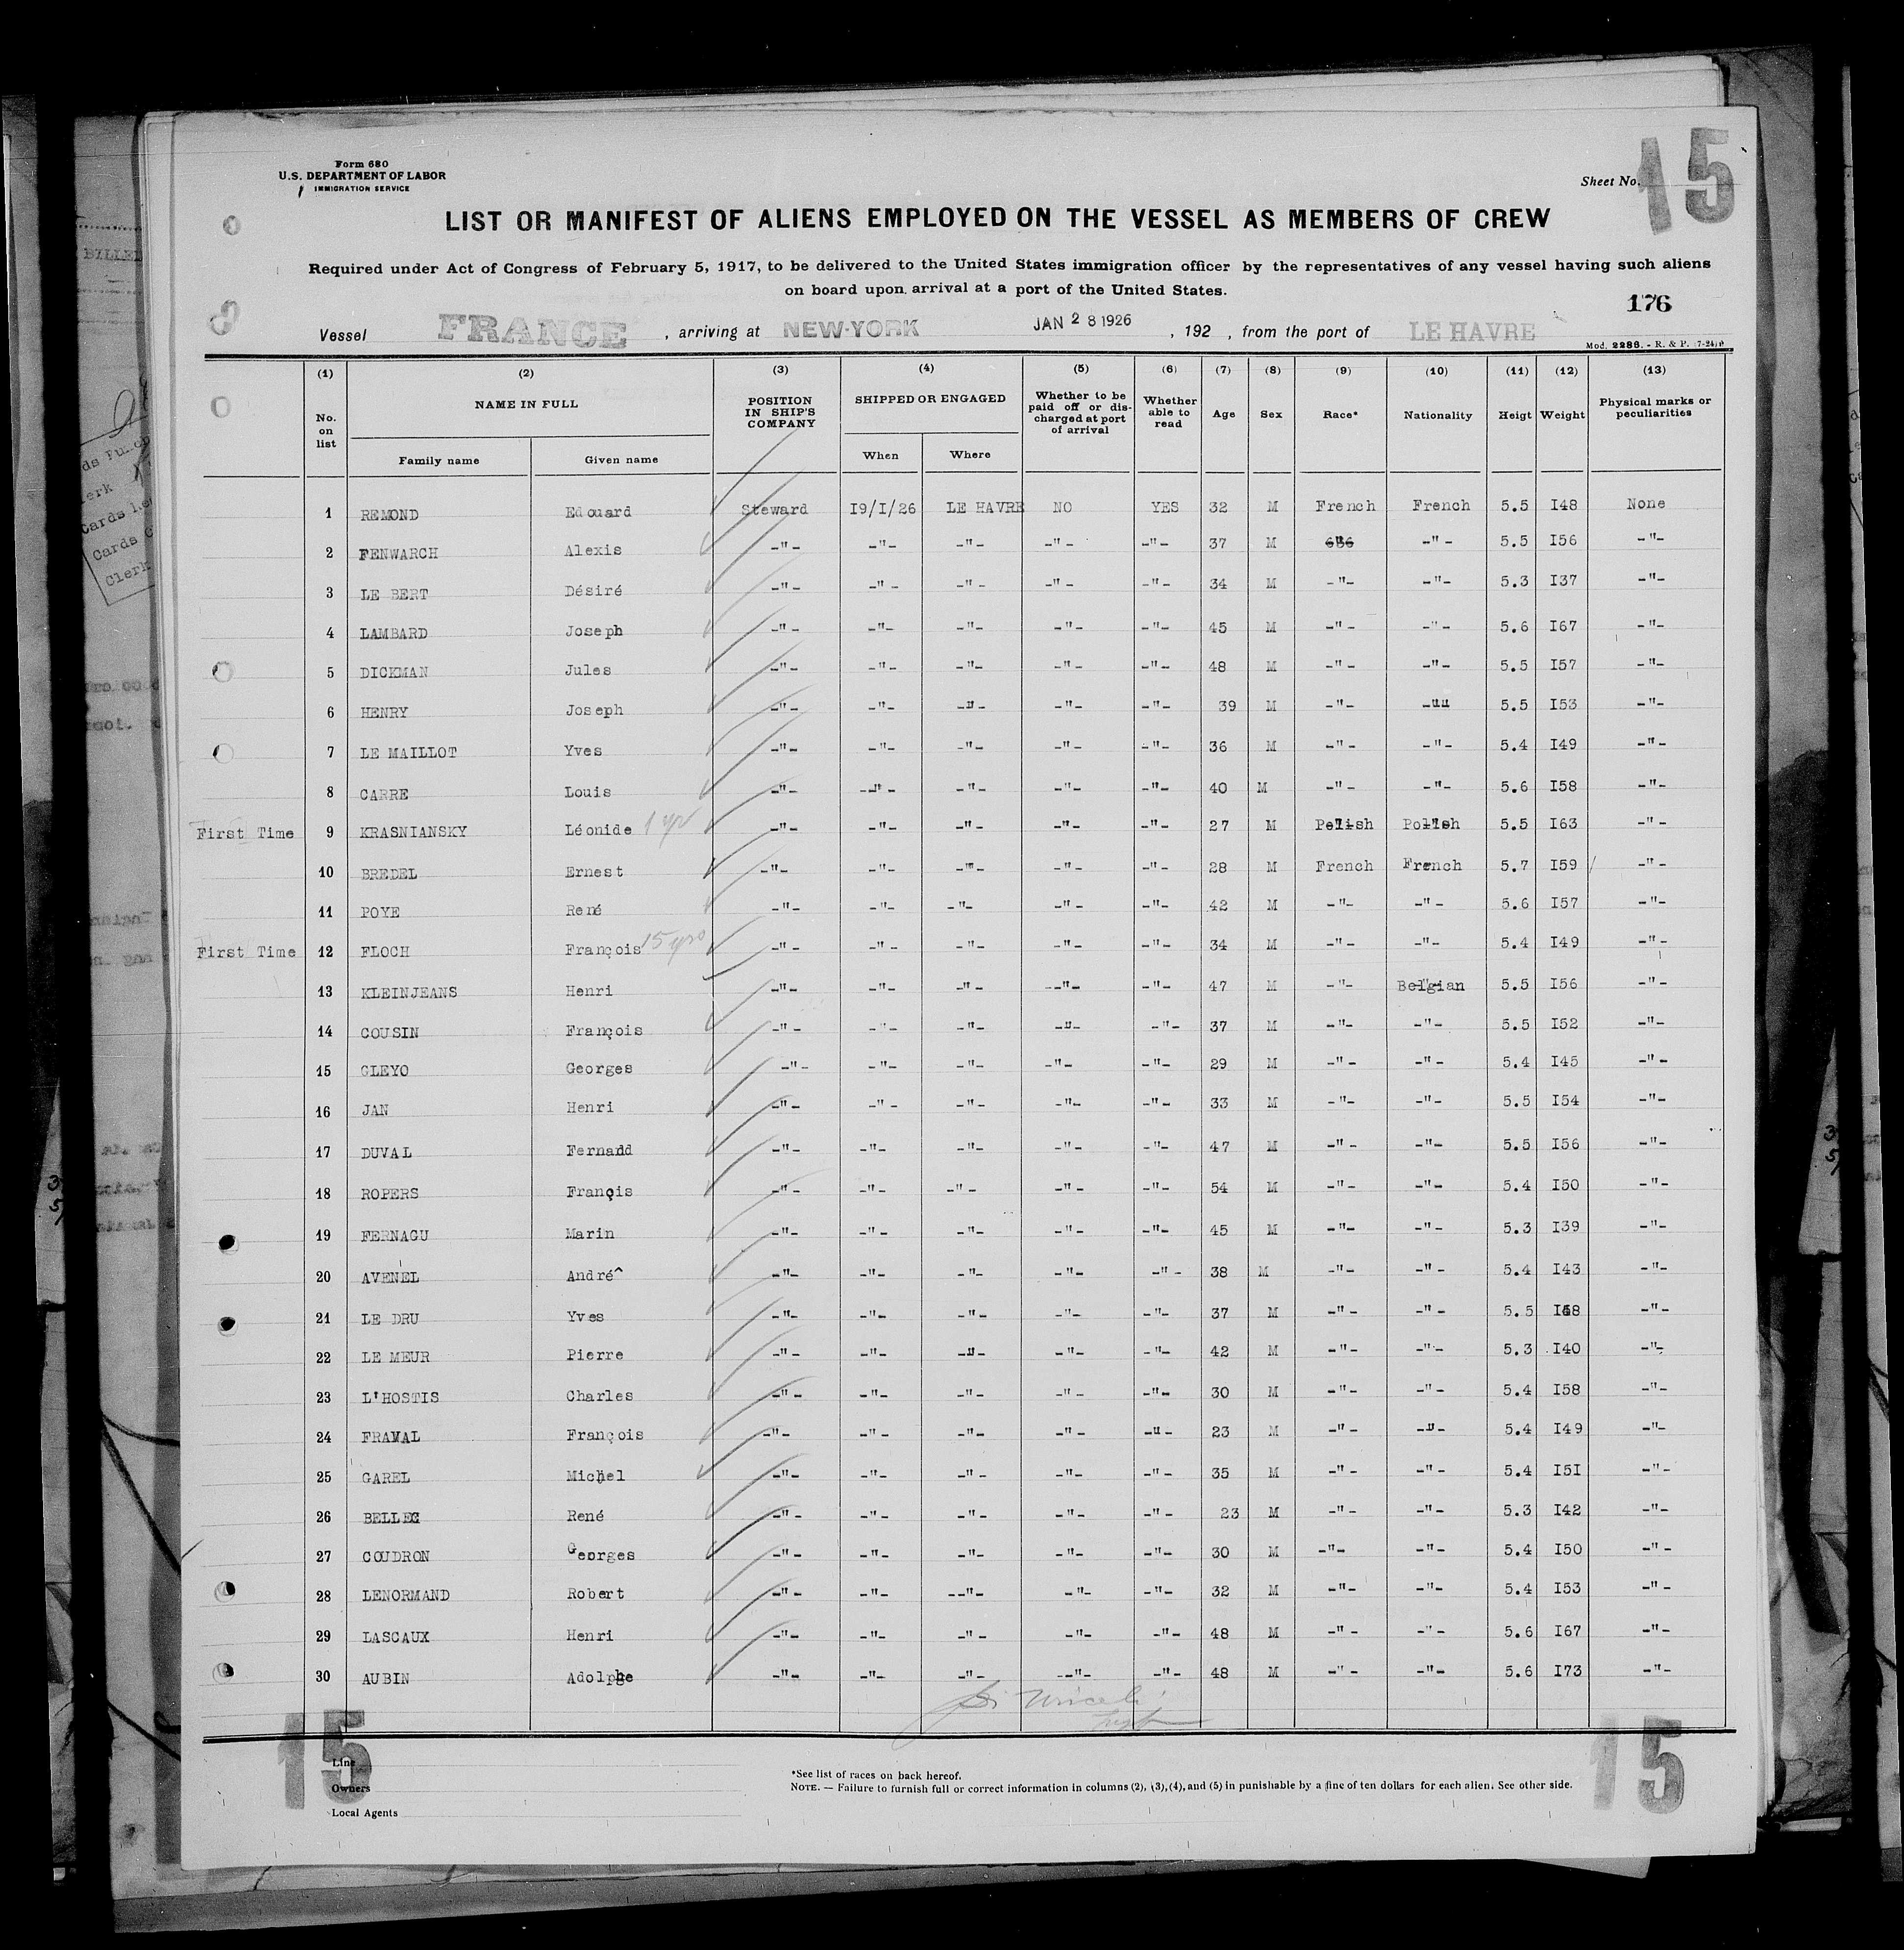 Form 680
U.S. DEPARTMENT OF LABOR
IMMIGRATION SERVICE
Sheet No. 15
LIST OR MANIFEST OF ALIENS EMPLOYED ON THE VESSEL AS MEMBERS OF CREW
Required under Act of Congress of February 5, 1917, to be delivered to the United States immigration officer by the representatives of any vessel having such aliens
on board upon arrival at a port of the United States.
176
Vessel FRANCE , arriving at NEW-YORK JAN 28 1926 , 192 , from the port of LE HAVRE
Mod. 2286. - R. & P.
(1) (2) (3) (4) (5) (6) (7) (8) (9) (10) (11) (12) (13)
No. on list NAME IN FULL POSITION IN SHIP'S COMPANY SHIPPED OR ENGAGED Whether to be paid off or discharged at port of arrival Whether able to read Age Sex Race* Nationality Heigt Weight Physical marks or peculiarities
Family name Given name When Where
1 REMOND Edouard Steward I9/I/26 LE HAVRE NO YES 32 M French French 5.5 I48 None
2 FENWARCH Alexis -"- -"- -"- -"- -"- 37 M -"- -"- 5.5 I56 -"-
3 LE BERT Désiré -"- -"- -"- -"- -"- 34 M -"- -"- 5.3 I37 -"-
4 LAMBARD Joseph -"- -"- -"- -"- -"- 45 M -"- -"- 5.6 I67 -"-
5 DICKMAN Jules -"- -"- -"- -"- -"- 48 M -"- -"- 5.5 I57 -"-
6 HENRY Joseph -"- -"- -"- -"- -"- 39 M -"- -"- 5.5 I53 -"-
7 LE MAILLOT Yves -"- -"- -"- -"- -"- 36 M -"- -"- 5.4 I49 -"-
8 CARRE Louis -"- -"- -"- -"- -"- 40 M -"- -"- 5.6 I58 -"-
First Time 9 KRASNIANSKY Léonide 1 yr -"- -"- -"- -"- -"- 27 M Polish Polish 5.5 I63 -"-
10 BREDEL Ernest -"- -"- -"- -"- -"- 28 M French French 5.7 I59 -"-
11 POYE René -"- -"- -"- -"- -"- 42 M -"- -"- 5.6 I57 -"-
First Time 12 FLOCH François 15 yrs -"- -"- -"- -"- -"- 34 M -"- -"- 5.4 I49 -"-
13 KLEINJEANS Henri -"- -"- -"- -"- -"- 47 M -"- Belgian 5.5 I56 -"-
14 COUSIN François -"- -"- -"- -"- -"- 37 M -"- -"- 5.5 I52 -"-
15 GLEYO Georges -"- -"- -"- -"- -"- 29 M -"- -"- 5.4 I45 -"-
16 JAN Henri -"- -"- -"- -"- -"- 33 M -"- -"- 5.5 I54 -"-
17 DUVAL Fernand -"- -"- -"- -"- -"- 47 M -"- -"- 5.5 I56 -"-
18 ROPERS Françis -"- -"- -"- -"- -"- 54 M -"- -"- 5.4 I50 -"-
19 FERNAGU Marin -"- -"- -"- -"- -"- 45 M -"- -"- 5.3 I39 -"-
20 AVENEL André^ -"- -"- -"- -"- -"- 38 M -"- -"- 5.4 I43 -"-
21 LE DRU Yves -"- -"- -"- -"- -"- 37 M -"- -"- 5.5 -"-
22 LE MEUR Pierre -"- -"- -"- -"- -"- 42 M -"- -"- 5.3 I40 -"-
23 L'HOSTIS Charles -"- -"- -"- -"- -"- 30 M -"- -"- 5.4 I58 -"-
24 FRAVAL François -"- -"- -"- -"- -"- 23 M -"- -"- 5.4 I49 -"-
25 GAREL Michel -"- -"- -"- -"- -"- 35 M -"- -"- 5.4 I5I -"-
26 BELLEC René -"- -"- -"- -"- -"- 23 M -"- -"- 5.3 I42 -"-
27 COUDRON Georges -"- -"- -"- -"- -"- 30 M -"- -"- 5.4 I50 -"-
28 LENORMAND Robert -"- -"- -"- -"- -"- 32 M -"- -"- 5.4 I53 -"-
29 LASCAUX Henri -"- -"- -"- -"- -"- 48 M -"- -"- 5.6 I67 -"-
30 AUBIN Adolphe -"- -"- -"- -"- -"- 48 M -"- -"- 5.6 I73 -"-
15
15
Line
Owners
Local Agents
*See list of races on back hereof.
NOTE. — Failure to furnish full or correct information in columns (2), (3), (4), and (5) in punishable by a fine of ten dollars for each alien. See other side.